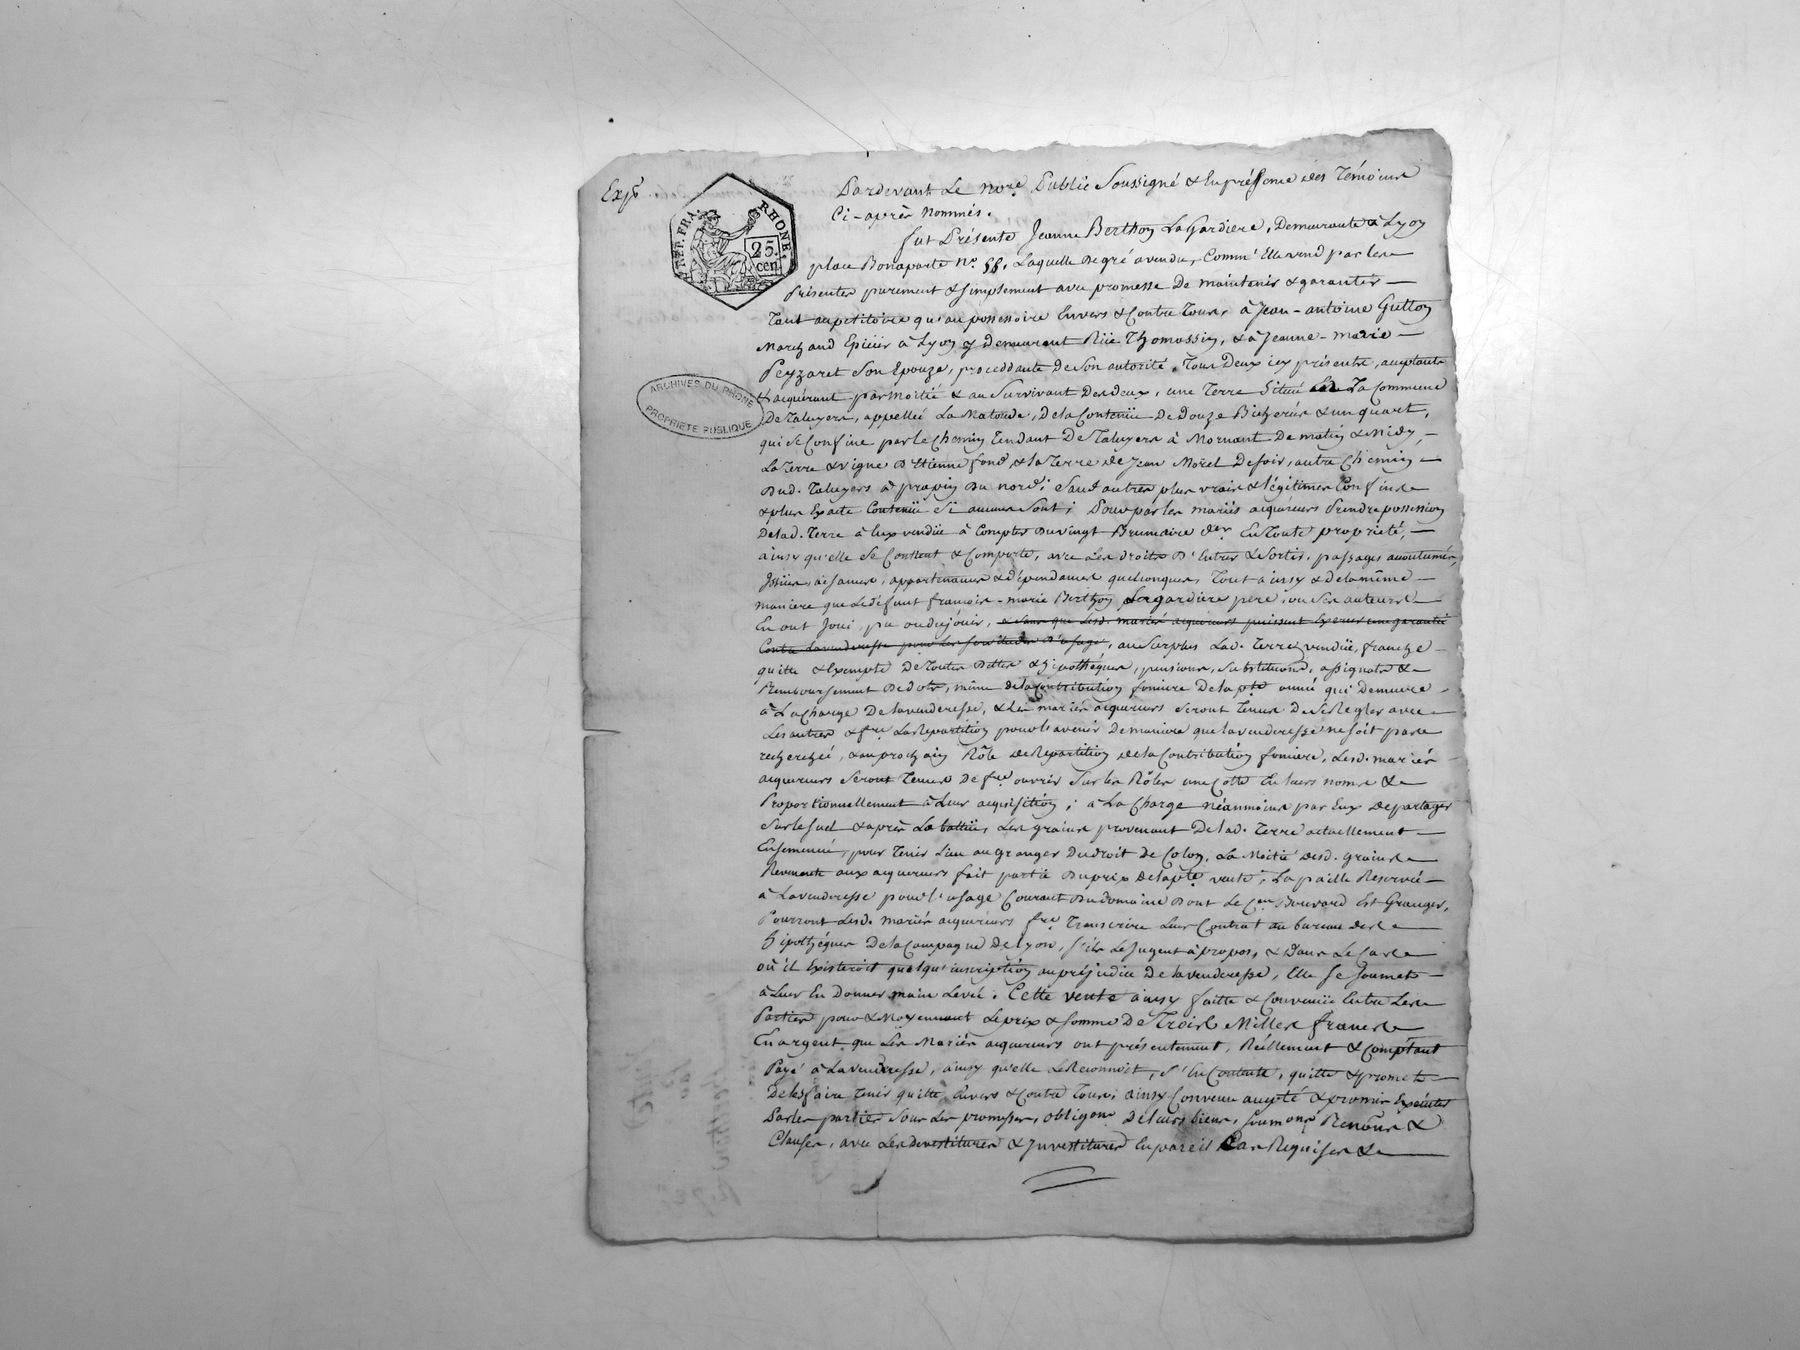 Expé
REP. FRA.
RHONE.
25. cen.
Pardevant Le nore. Public Soussigné & En présence des Témoins
Ci-après nommés.
fut Présente Jeanne Berthon Lagardiere, Demeurante à Lyon
place Bonaparte No. 55. Laquelle de gré a vendu, Comm' Elle vend par les
Présentes purement & simplement avec promesse de maintenir & garantir
Tant au petitoire qu'au possessoire Envers & Contre Tous, à Jean-antoine Gutton
Marchand Epicier à Lyon y demeurant Rüe Thomassin, & à Jeanne-marie
Peyzaret Son Epouze, proceddante de Son autorité, Tous Deux icy présents, acceptants
& acquérant par Moitié & au Survivant Des deux, une Terre Située La Commune
De Taluyers, appellée La Matoude, De la Contenüe De Douze Bicherées & un quart,
qui Se Confine par le Chemin Tendant De Taluyers à Mornant De matin & Midy,
La Terre & vigne D'Etienne fond, & la Terre de Jean Morel De soir, autre Chemin
Dud. Taluyers à prapin Du nord; Sauf autres plus vrais & légitimes Confins
& plus Exacte Contenüe Si aucuns Sont; Pour par les mariés acquereurs Prendre possession
De lad. Terre à Eux vendüe à Compter Du vingt Brumaire der. En Toute propriété,
ainsy qu'elle Se Contient & Comporte, avec Les droits D'Entrée & Sortie, passages accoutumés,
Issües, aisances, appartenances & dépendances quelconques, Tout ainsy & de la même
maniere que Le défunt françois-marie Berthon Lagardiere pere, ou Ses auteurs
En ont Joui, pu ou du joüir, & sans que Lesd. mariés acquereurs puissent Exercer une garantie
Contre La venderesse pour les servitudes D'usage, au Surplus Lad. Terre vendüe, franche
quitte & Exempte De Toutes Dettes & hipothéques, pensions, Substitutions, assignats &
Remboursement De dots, même de la Contribution fonciere De la pte. année qui Demeure
à La Charge De la venderesse, & Les mariés acquereurs Seront Tenus De Se Regler avec
Les autres & fre. La Repartition pour l'avenir De maniere que la venderesse ne soit pas
recherchée, & au prochain Rôle de Repartition de la Contribution fonciere, Lesd. mariés
acquereurs Seront Tenus De fre. ouvrir Sur Les Rôles une Cotte En Leurs noms &
Proportionnellement à Leur acquisition; à La Charge néanmoins par Eux De partager
Sur le Suel & après La battüe, Les grains provenant De lad. Terre actuellement
Ensemencée, pour Tenir Lieu au granger Du droit de Colon, La Moitié desd. grains
Revenante aux acquereurs fait partie Du prix De la pte. vente; La paille Reservée
à La venderesse pour l'usage Courant Du domaine Dont Le Cen. Bouvard Est Granger,
Pourront Lesd. mariés acquereurs fre. Transcrire Leur Contrat au bureau des
hipothéques De la Campagne De Lyon, s'ils Le Jugent à propos, & Dans Le Cas
où il Existeroit quelqu'inscription au préjudice De la venderesse, Elle Se Soumet
à Leur En Donner main Levée. Cette vente ainsy faitte & Convenüe Entre Les
Parties pour & Moyennant Le prix & Somme De Trois Milles francs
En argent que Les Mariés acquereurs ont présentement, Réellement & Comptant
Payé à La venderesse, ainsy qu'elle Le Reconnoit, S'En Contente, quitte & promet
De les faire Tenir quitte Envers & Contre Tous; ainsy Convenu accepté & promis
Par les parties Sous Les promesses, obligons De leurs biens, Soumons Renõns &
Clauses, avec Les Devestitures & Investitures En pareil Cas Requises &
ARCHIVES DU RHONE
PROPRIETE PUBLIQUE